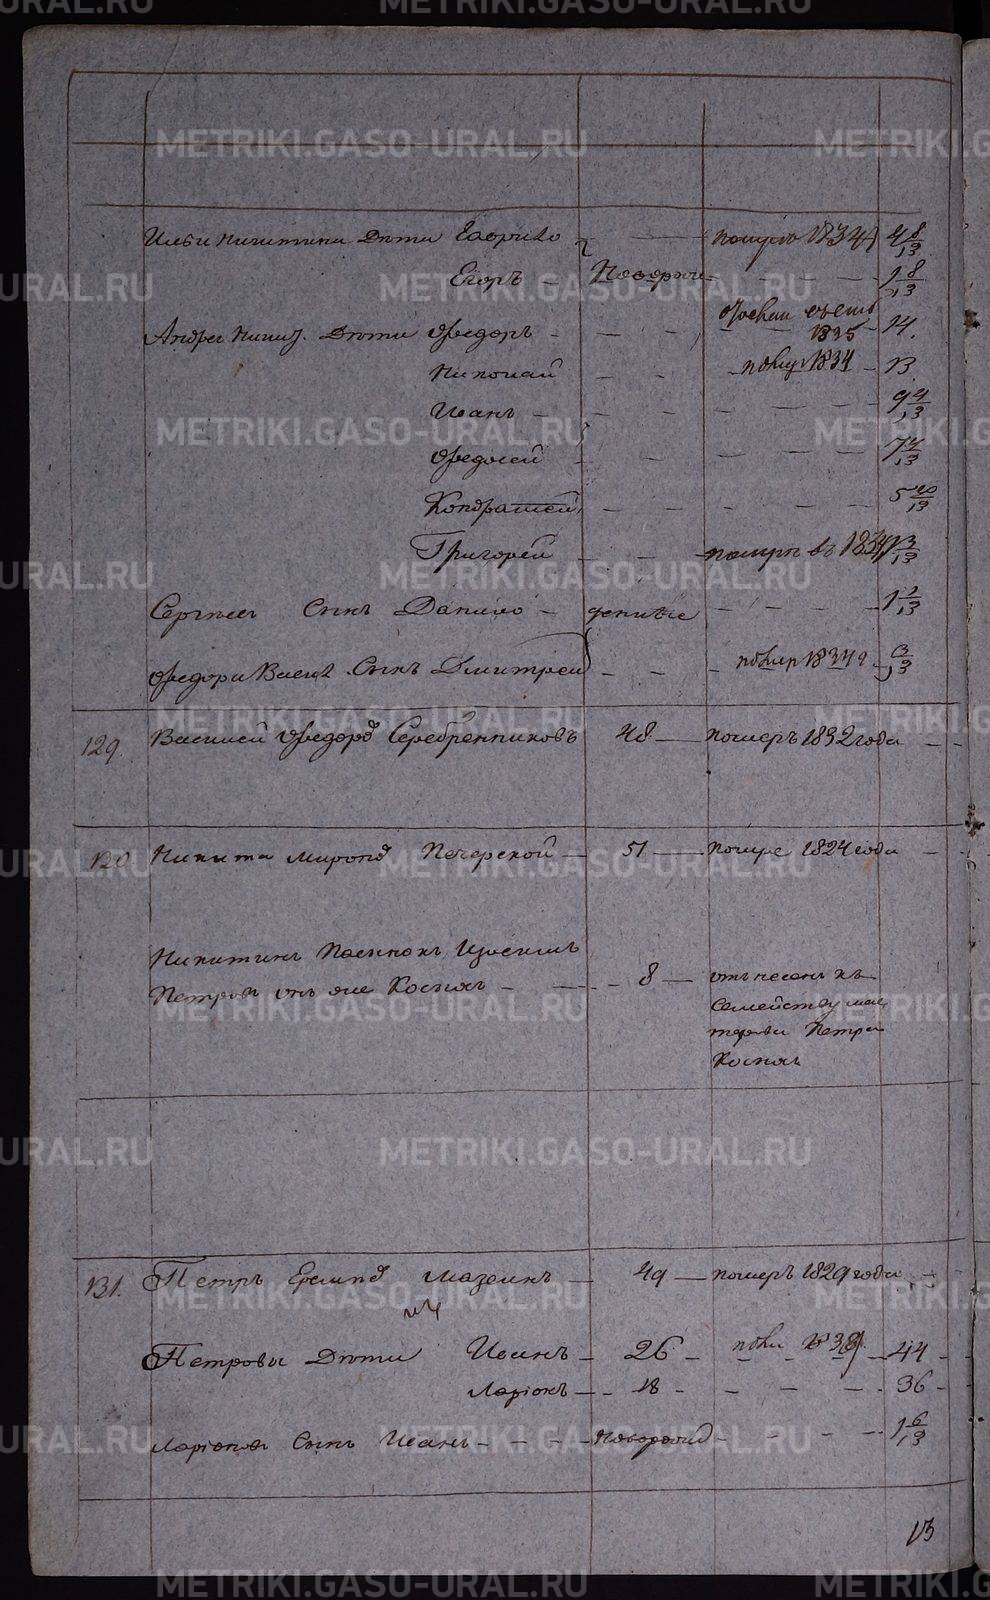 Ильи Никитина дѣти Гаврило помръ 1834 4 8/13
Егоръ Новорож 1 8/13
Андрея Никит. дѣти Ѳедоръ 14.
1835
Николай помр 1834 13
Иванъ 9 9/13
Ѳедосей 7 4/13
Кондратей 5 10/13
Григорей помръ въ 1834
Сергѣя сынъ Данило 1 1/13
Ѳедора Васил. сынъ Дмитрей помр 1834 3/13
129. Василей Ѳедоров Серебренниковъ 48 померъ 1832 года
130. Никита Миронов Печерской 51 помре 1824 года
Никитинъ
Петровъ онъ же Коснах 8 отнесенъ къ
семейству мас
терова Петра
Коснах
131. Петръ Мазеинъ 49 померъ 1829 года
Петровы дѣти Иванъ 26 пом 1838 44
Ларіонъ 18 36
Ларіонов сынъ Иванъ Новорожд 1 6/13
METRIKI.GASO-URAL.RU